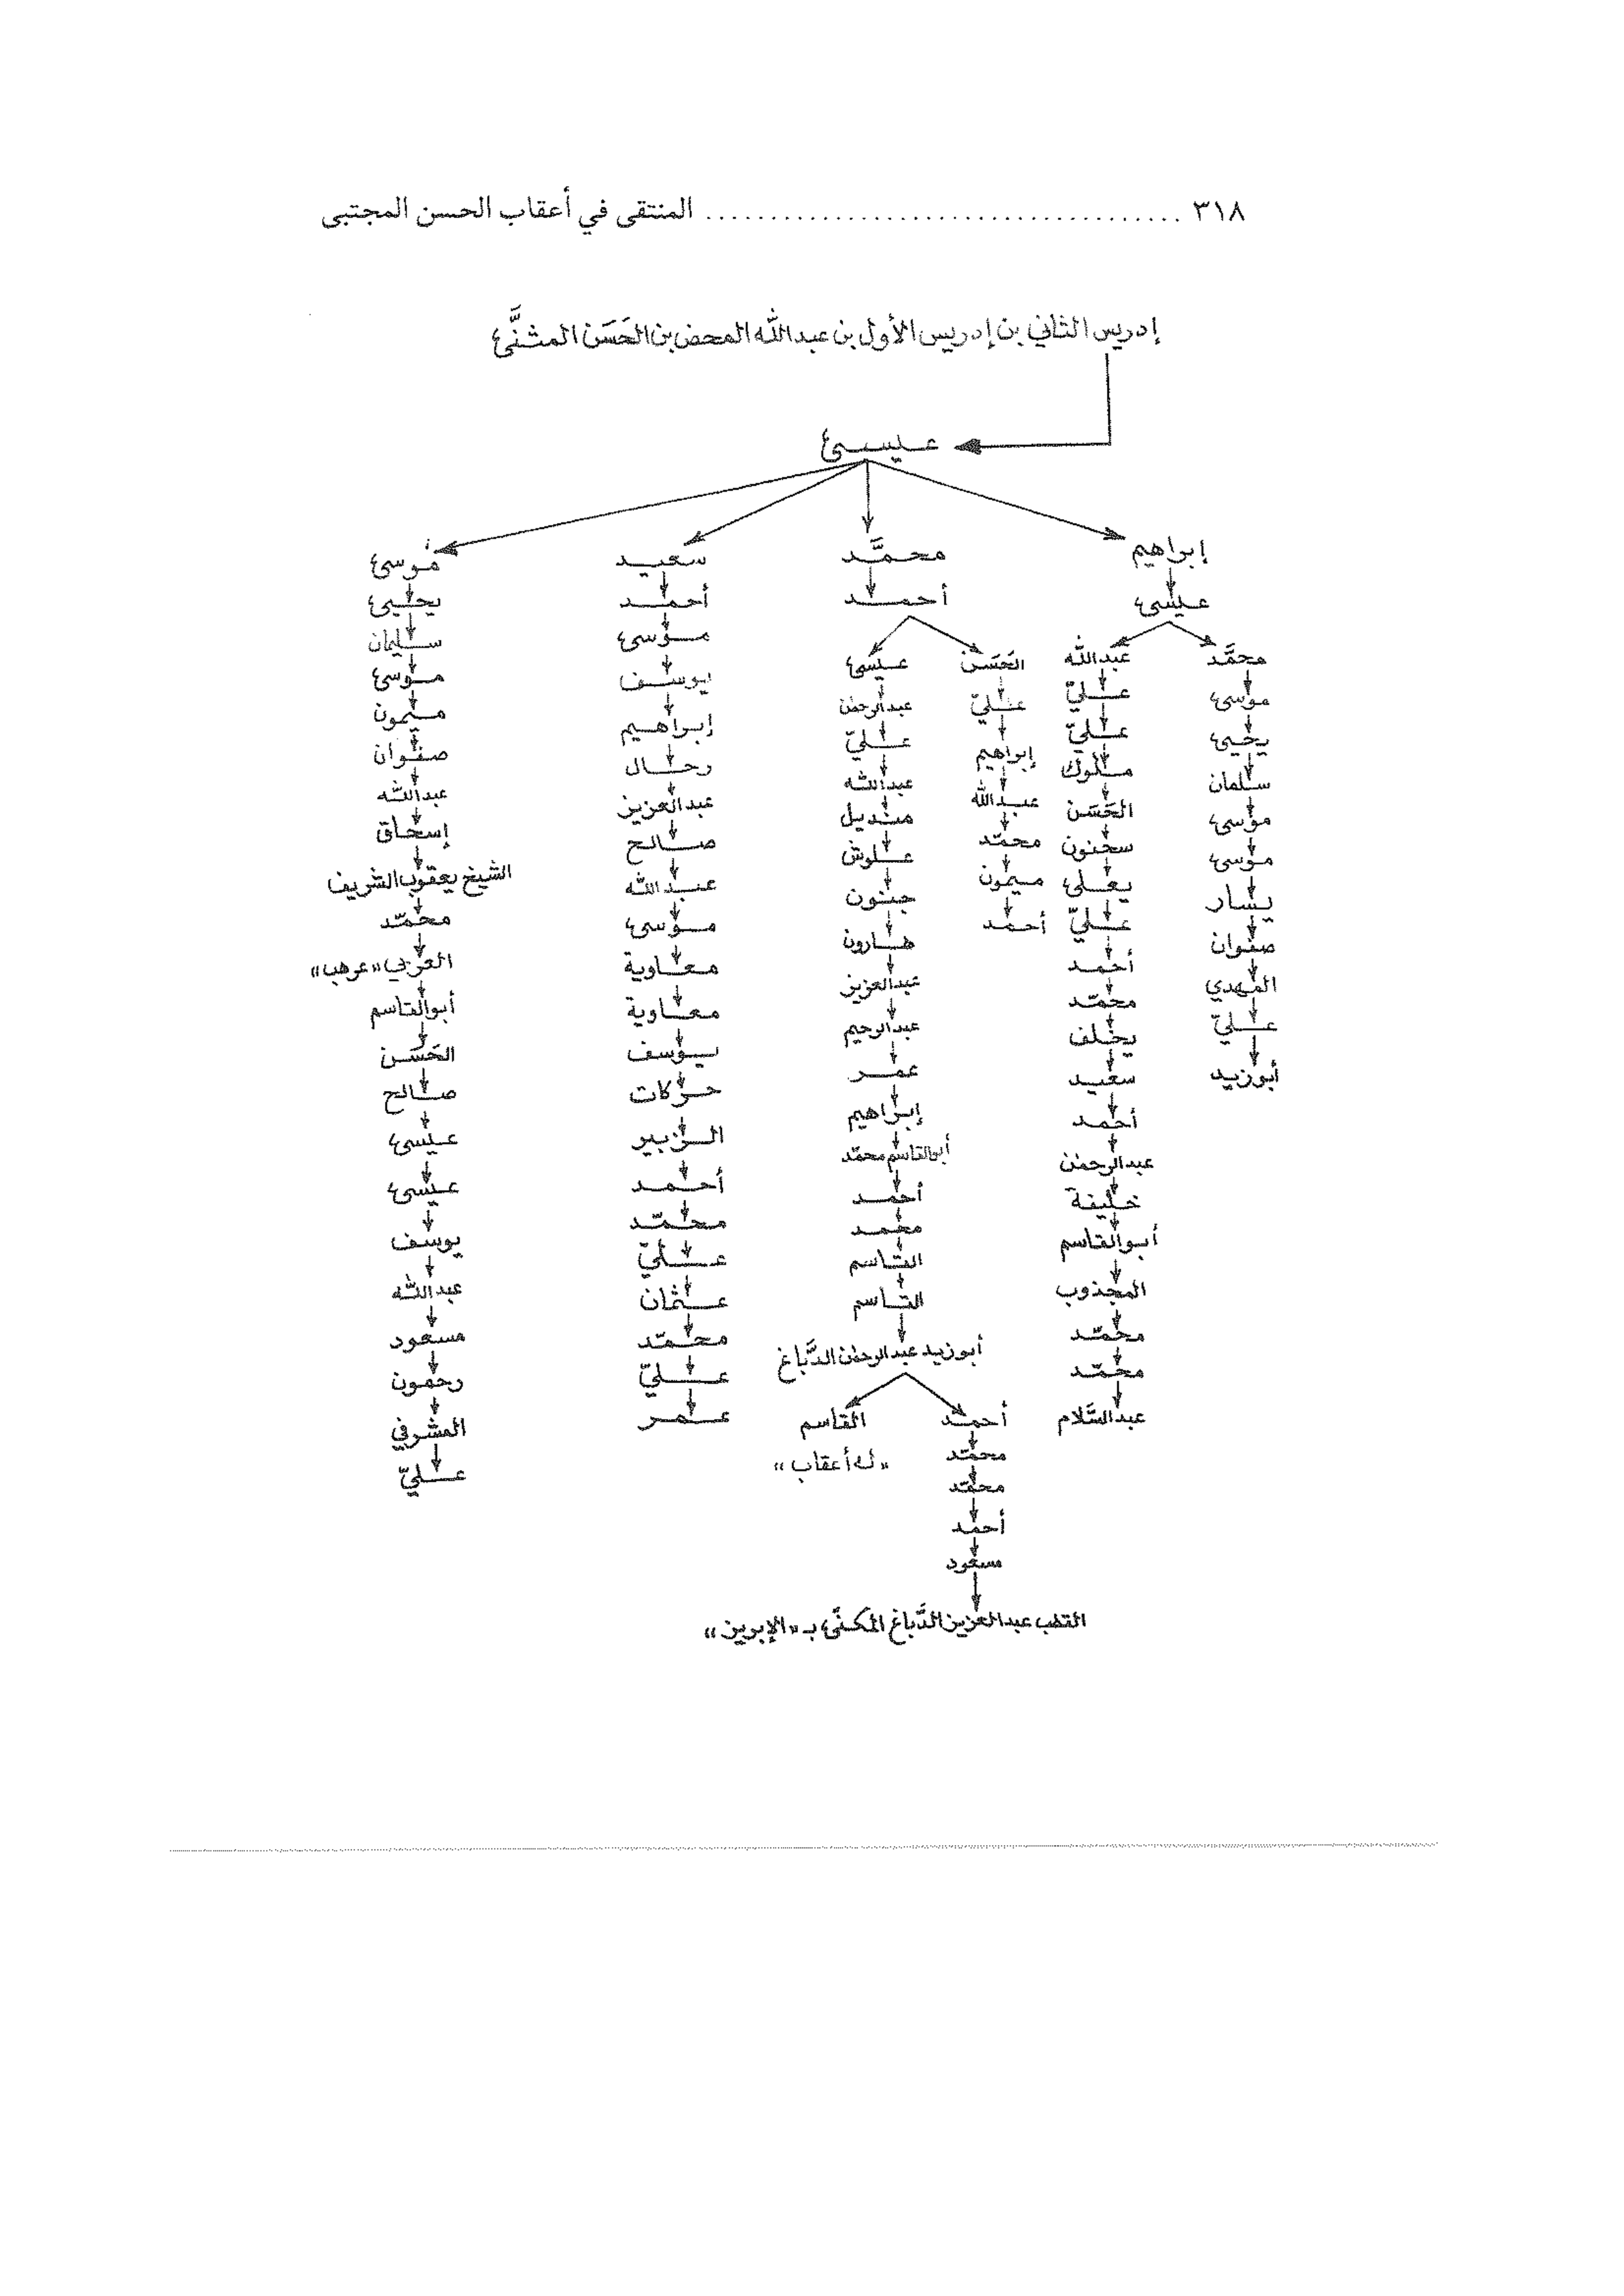 ٣١٨ .................................... المنتقى في أعقاب الحسن المجتبى
إدريس الثاني بن إدريس الأول بن عبدالله المحض بن الحَسَن المثنَّى
عيسى
إبراهيم
عيسى
محمَّد
موسى
يحيى
سلمان
موسى
موسى
يسار
صفوان
المهدي
عليّ
أبوزيد
عبدالله
عليّ
عليّ
ملوك
الحَسَن
سحنون
يعلى
عليّ
أحمد
محمّد
يخلف
سعيد
أحمد
عبدالرحمن
خليفة
أبوالقاسم
المجذوب
محمّد
محمّد
عبدالسَّلام
محمَّد
أحمد
الحَسَن
عليّ
إبراهيم
عبدالله
محمّد
ميمون
أحمد
عيسى
عبدالرحمن
عليّ
عبدالله
منديل
علوش
جنون
هارون
عبدالعزيز
عبدالرحيم
عمر
إبراهيم
أبوالقاسم محمّد
أحمد
محمد
القاسم
القاسم
أبوزيد عبدالرحمن الدَّباغ
أحمد
محمّد
محمّد
أحمد
مسعود
القطب عبدالعزيز الدَّباغ المكنّى بـ «الإبريز»
القاسم
«له أعقاب»
سعيد
أحمد
موسى
يوسف
إبراهيم
رحال
عبدالعزيز
صالح
عبدالله
موسى
معاوية
معاوية
يوسف
حركات
الزبير
أحمد
محمّد
عليّ
عثمان
محمّد
عليّ
عمر
موسى
يحيى
سليمان
موسى
ميمون
صفوان
عبدالله
إسحاق
الشيخ يعقوب الشريف
محمّد
العربي «عرهب»
أبوالقاسم
الحَسَن
صالح
عيسى
عيسى
يوسف
عبدالله
مسعود
رحمون
المشرفي
عليّ